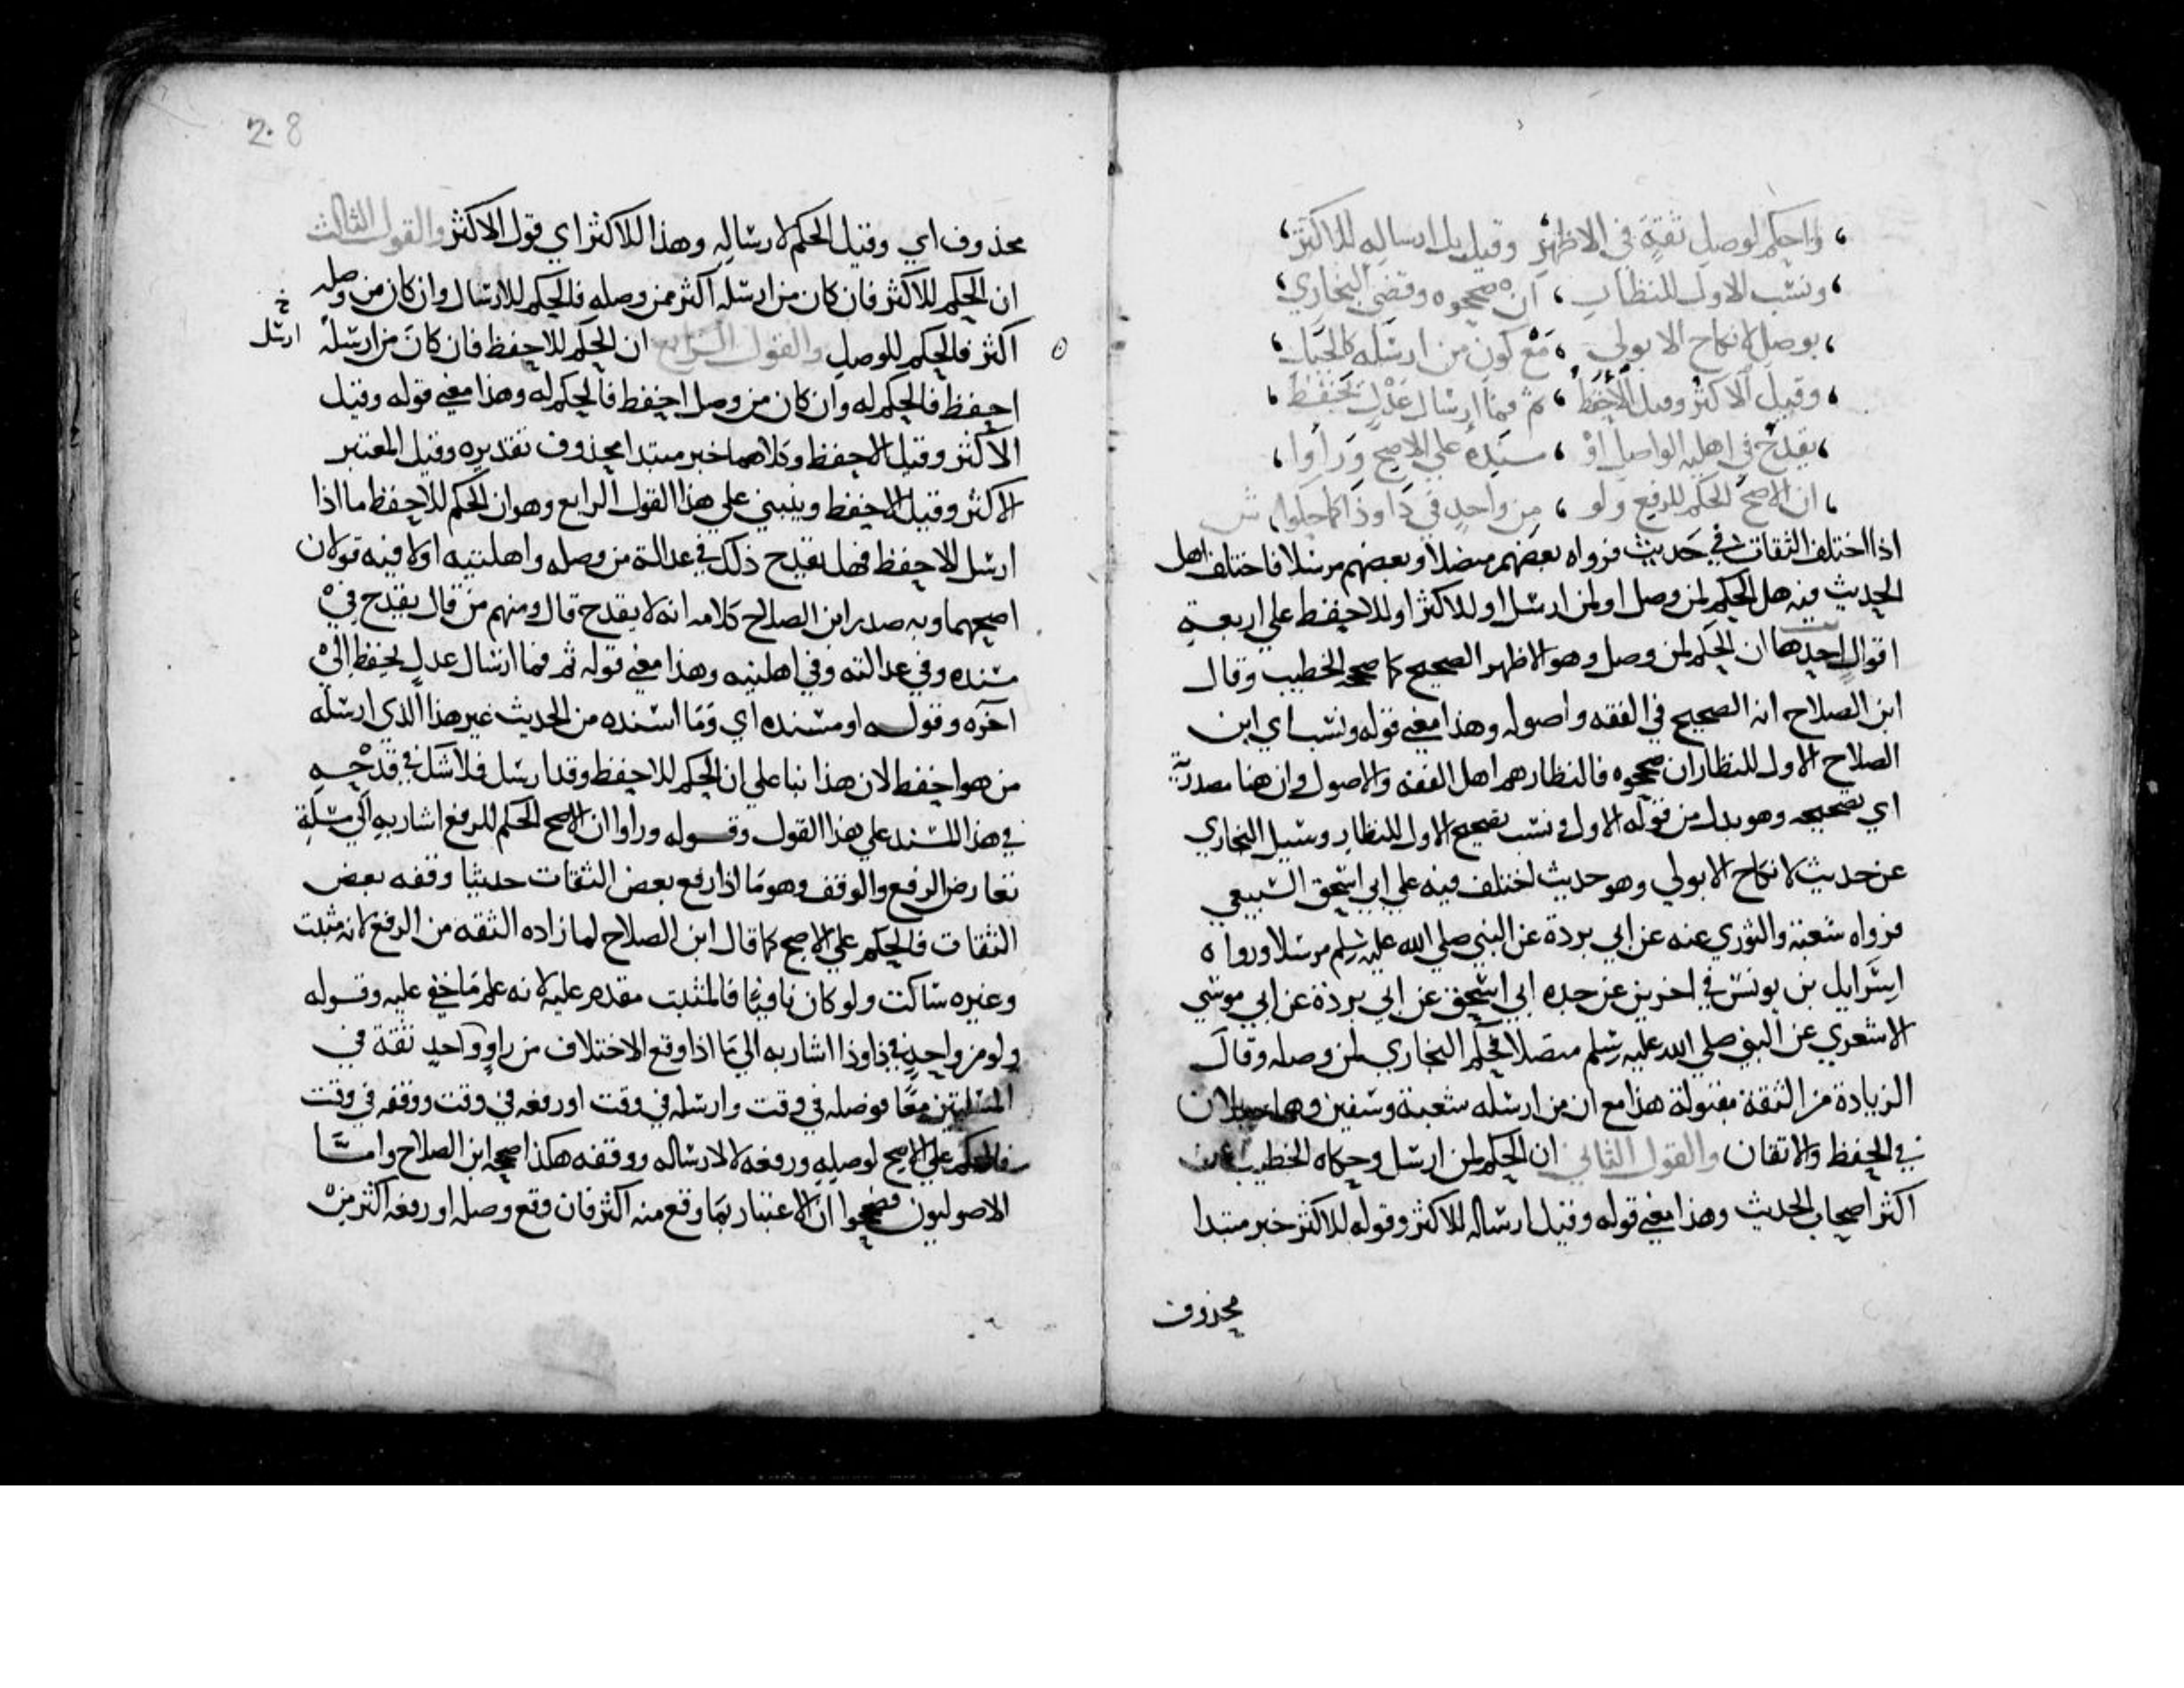 واحكم لوصل ثقة في الاظهر وقيل بل ارساله للاكثر
ونسب الاول للنظار ان صححوه وقضى البخاري
بوصل لا نكاح الا بولي مع كون من ارسله كالجبل
وقيل الاكثر وقيل الاحفظ ثم فما ارسال عدل يحفظ
يقدح في اهلية الواصل او مسنده على الاصح وراوا
ان الاصح الحكم للرفع ولو من واحد في ذا وذا كما حكوا ش
اذا اختلف الثقات في حديث فرواه بعضهم متصلا وبعضهم مرسلا فاختلف اهل
الحديث فيه هل الحكم لمن وصل او لمن ارسل او للاكثر او للاحفظ على اربعة
اقوال احدها ان الحكم لمن وصل وهو الاظهر الصحيح كما صححه الخطيب وقال
ابن الصلاح انه الصحيح في الفقه واصوله وهذا معنى قوله ونسب اي ابن
الصلاح الاول للنظار ان صححوه فالنظار هم اهل الفقه والاصول وان هنا مصدرية
اي تصحيحه وهو بدل من قوله الاول اي ونسب تصحيح الاول للنظار وسيل البخاري
عن حديث لا نكاح الا بولي وهو حديث اختلف فيه على ابي اسحق السبيعي
فرواه شعبة والثوري عنه عن ابي بردة عن النبي صلى الله عليه وسلم مرسلا ورواه
اسرايل بن يونس في اخرين عن جده ابي اسحق عن ابي بردة عن ابي موسى
الاشعري عن النبي صلى الله عليه وسلم متصلا فحكم البخاري لمن وصله وقال
الزيادة من الثقة مقبولة هذا مع ان من ارسله شعبة وسفين وهما جبلان
في الحفظ والاتقان والقول الثاني ان الحكم لمن ارسل وحكاه الخطيب عن
اكثر اصحاب الحديث وهذا معنى قوله وقيل بل ارساله للاكثر وقوله للاكثر خبر مبتدا
محذوف
2.8
محذوف اي وقيل الحكم لارساله وهذا للاكثر اي قول الاكثر والقول الثالث
ان الحكم للاكثر فان كان من ارسله اكثر ممن وصله فالحكم للارسال وان كان من وصله
اكثر فالحكم للوصل والقول الرابع ان الحكم للاحفظ فان كان من ارسله
خ ارسل
احفظ فالحكم له وان كان من وصل احفظ فالحكم له وهذا معنى قوله وقيل
الاكثر وقيل الاحفظ وكلاهما خبر مبتدا محذوف تقديره وقيل المعتبر
الاكثر وقيل الاحفظ وينبني على هذا القول الرابع وهو ان الحكم للاحفظ ما اذا
ارسل الاحفظ فهل يقدح ذلك في عدالة من وصله واهليته اولا فيه قولان
اصحهما وبه صدر ابن الصلاح كلامه انه لا يقدح قال ومنهم من قال يقدح في
مسنده وفي عدالته وفي اهليته وهذا معنى قوله ثم فما ارسال عدل يحفظ الى
اخره وقوله او مسنده اي وما اسنده من الحديث غير هذا الذي ارسله
من هو احفظ لان هذا بنا على ان الحكم للاحفظ وقد ارسل فلا شك في قدحه
في هذا المسند على هذا القول وقوله وراوا ان الاصح الحكم للرفع اشار به الى مسلة
تعارض الرفع والوقف وهو ما اذا رفع بعض الثقات حديثا وقفه بعض
الثقات فالحكم على الاصح كما قال ابن الصلاح لما زاده الثقة من الرفع لانه مثبت
وغيره ساكت ولو كان نافيا فالمثبت مقدم عليه لانه علم ما خفي عليه وقوله
ولو من واحد في ذا وذا اشار به الى ما اذا وقع الاختلاف من راو واحد ثقة في
المسلتين معا فوصله في وقت وارسله في وقت او رفعه في وقت ووقفه في وقت
فالحكم على الاصح لوصله ورفعه لا لارساله ووقفه هكذا صححه ابن الصلاح واما
الاصوليون فصححوا ان الاعتبار بما وقع منه اكثر فان وقع وصله او رفعه اكثر من